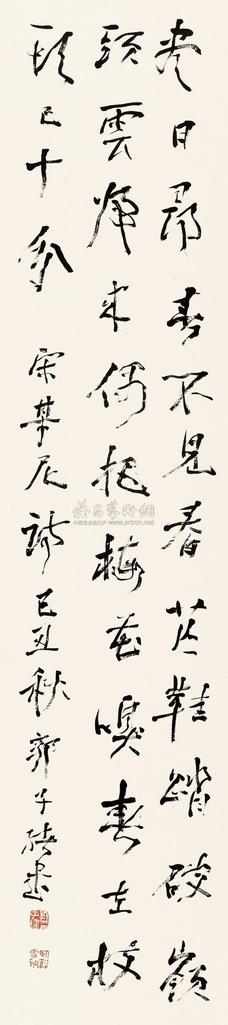 尽日寻春不见春芒鞋踏破岭
头云归来偶把梅花嗅春在枝
头已十分 宋某尼诗己丑秋郭子绪书